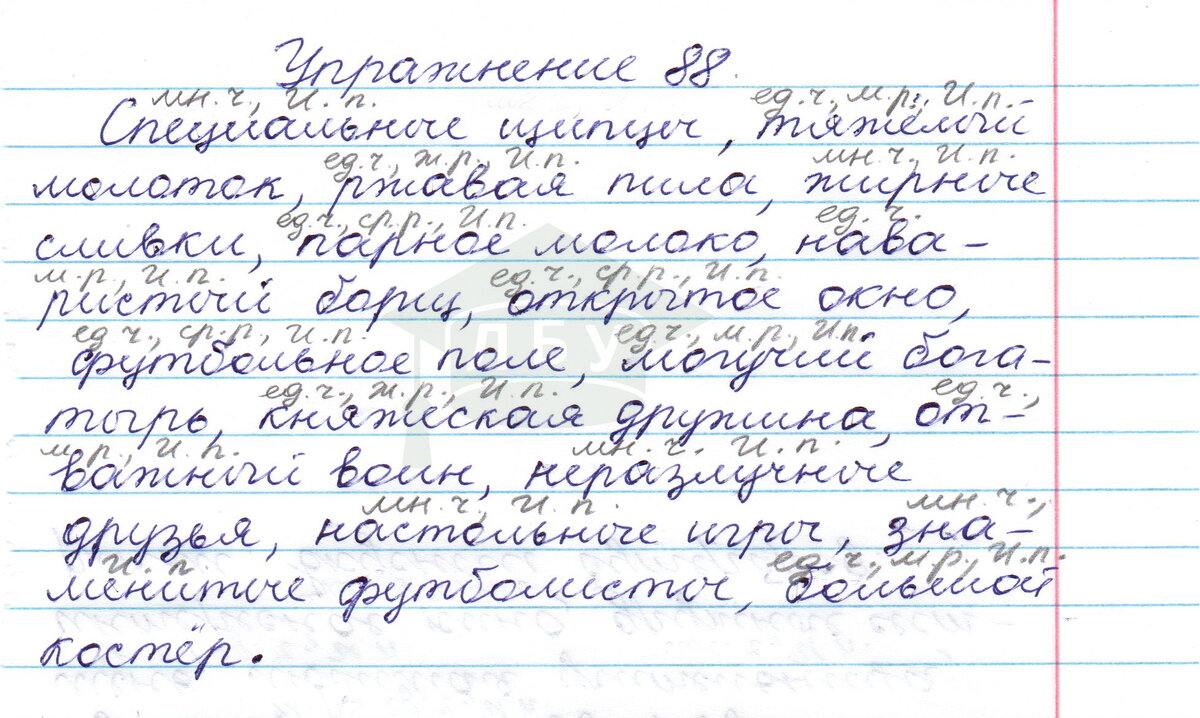 Упражнение 88.
мн.ч., И.п. ед.ч., м.р., И.п.
Специальные щипцы, тяжёлый
ед.ч., ж.р., И.п. мн.ч., И.п.
молоток, ржавая пила, жирные
ед.ч., ср.р., И.п. ед.ч.
сливки, парное молоко, нава-
м.р., И.п. ед.ч., ср.р., И.п.
ристый борщ, открытое окно,
ед.ч., ср.р., И.п. ед.ч., м.р., И.п.
футбольное поле, могучий бога-
ед.ч., ж.р., И.п. ед.ч.,
тырь, княжеская дружина, от-
м.р., И.п. мн.ч. И.п.
важный воин, неразлучные
мн.ч., И.п. мн.ч.,
друзья, настольные игры, зна-
И.п. ед.ч., м.р., И.п.
менитые футболисты, большой
костёр.
ДБУ